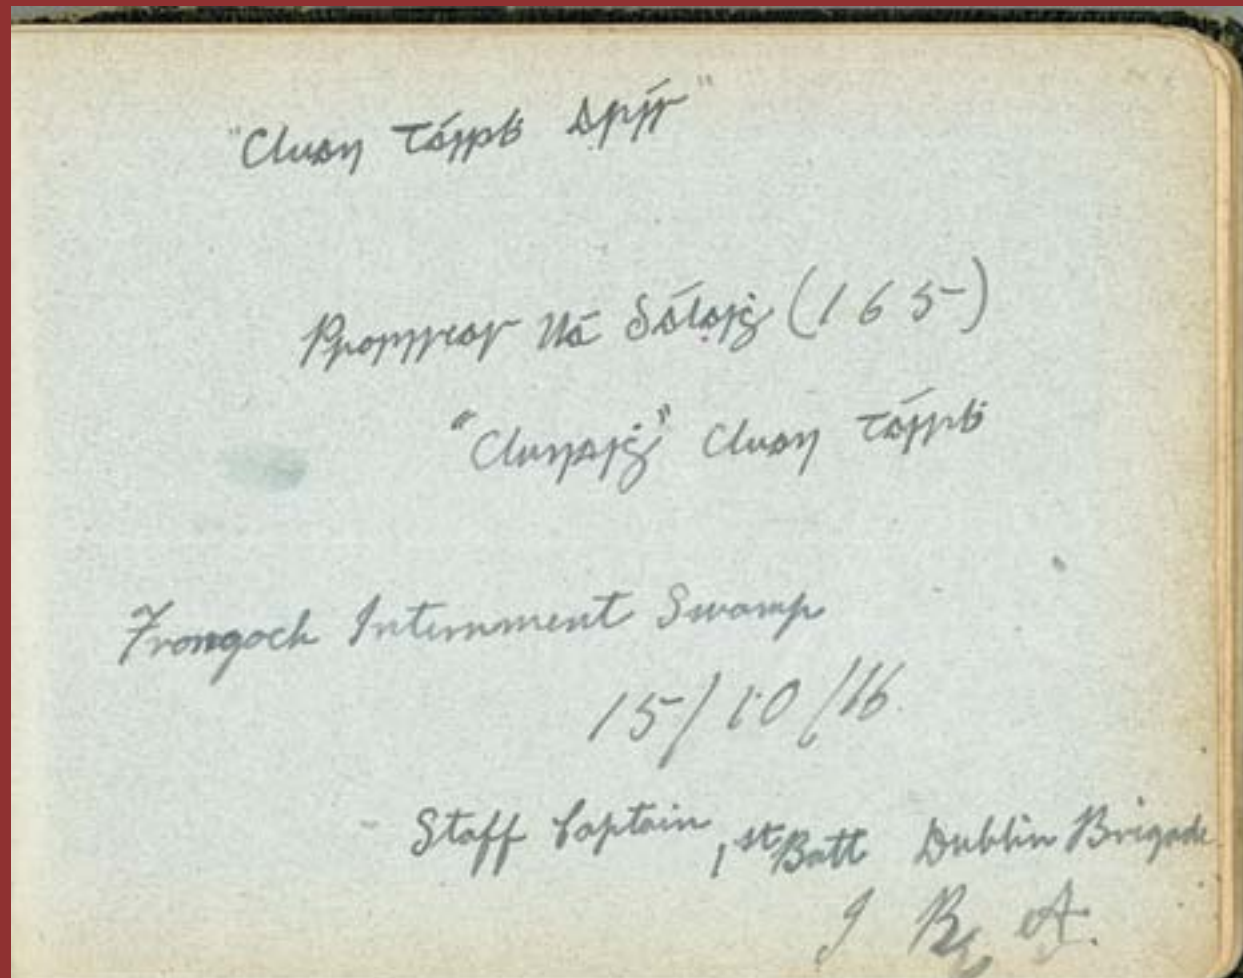 "Cluan Táirḃ Arís"
Proinnseas Ua Dálaiġ (165)
"Clunaiġ" Cluan Táirḃ
Frongoch Internment Swamp
15/10/16
Staff Captain, 1st Batt Dublin Brigade
I R A.